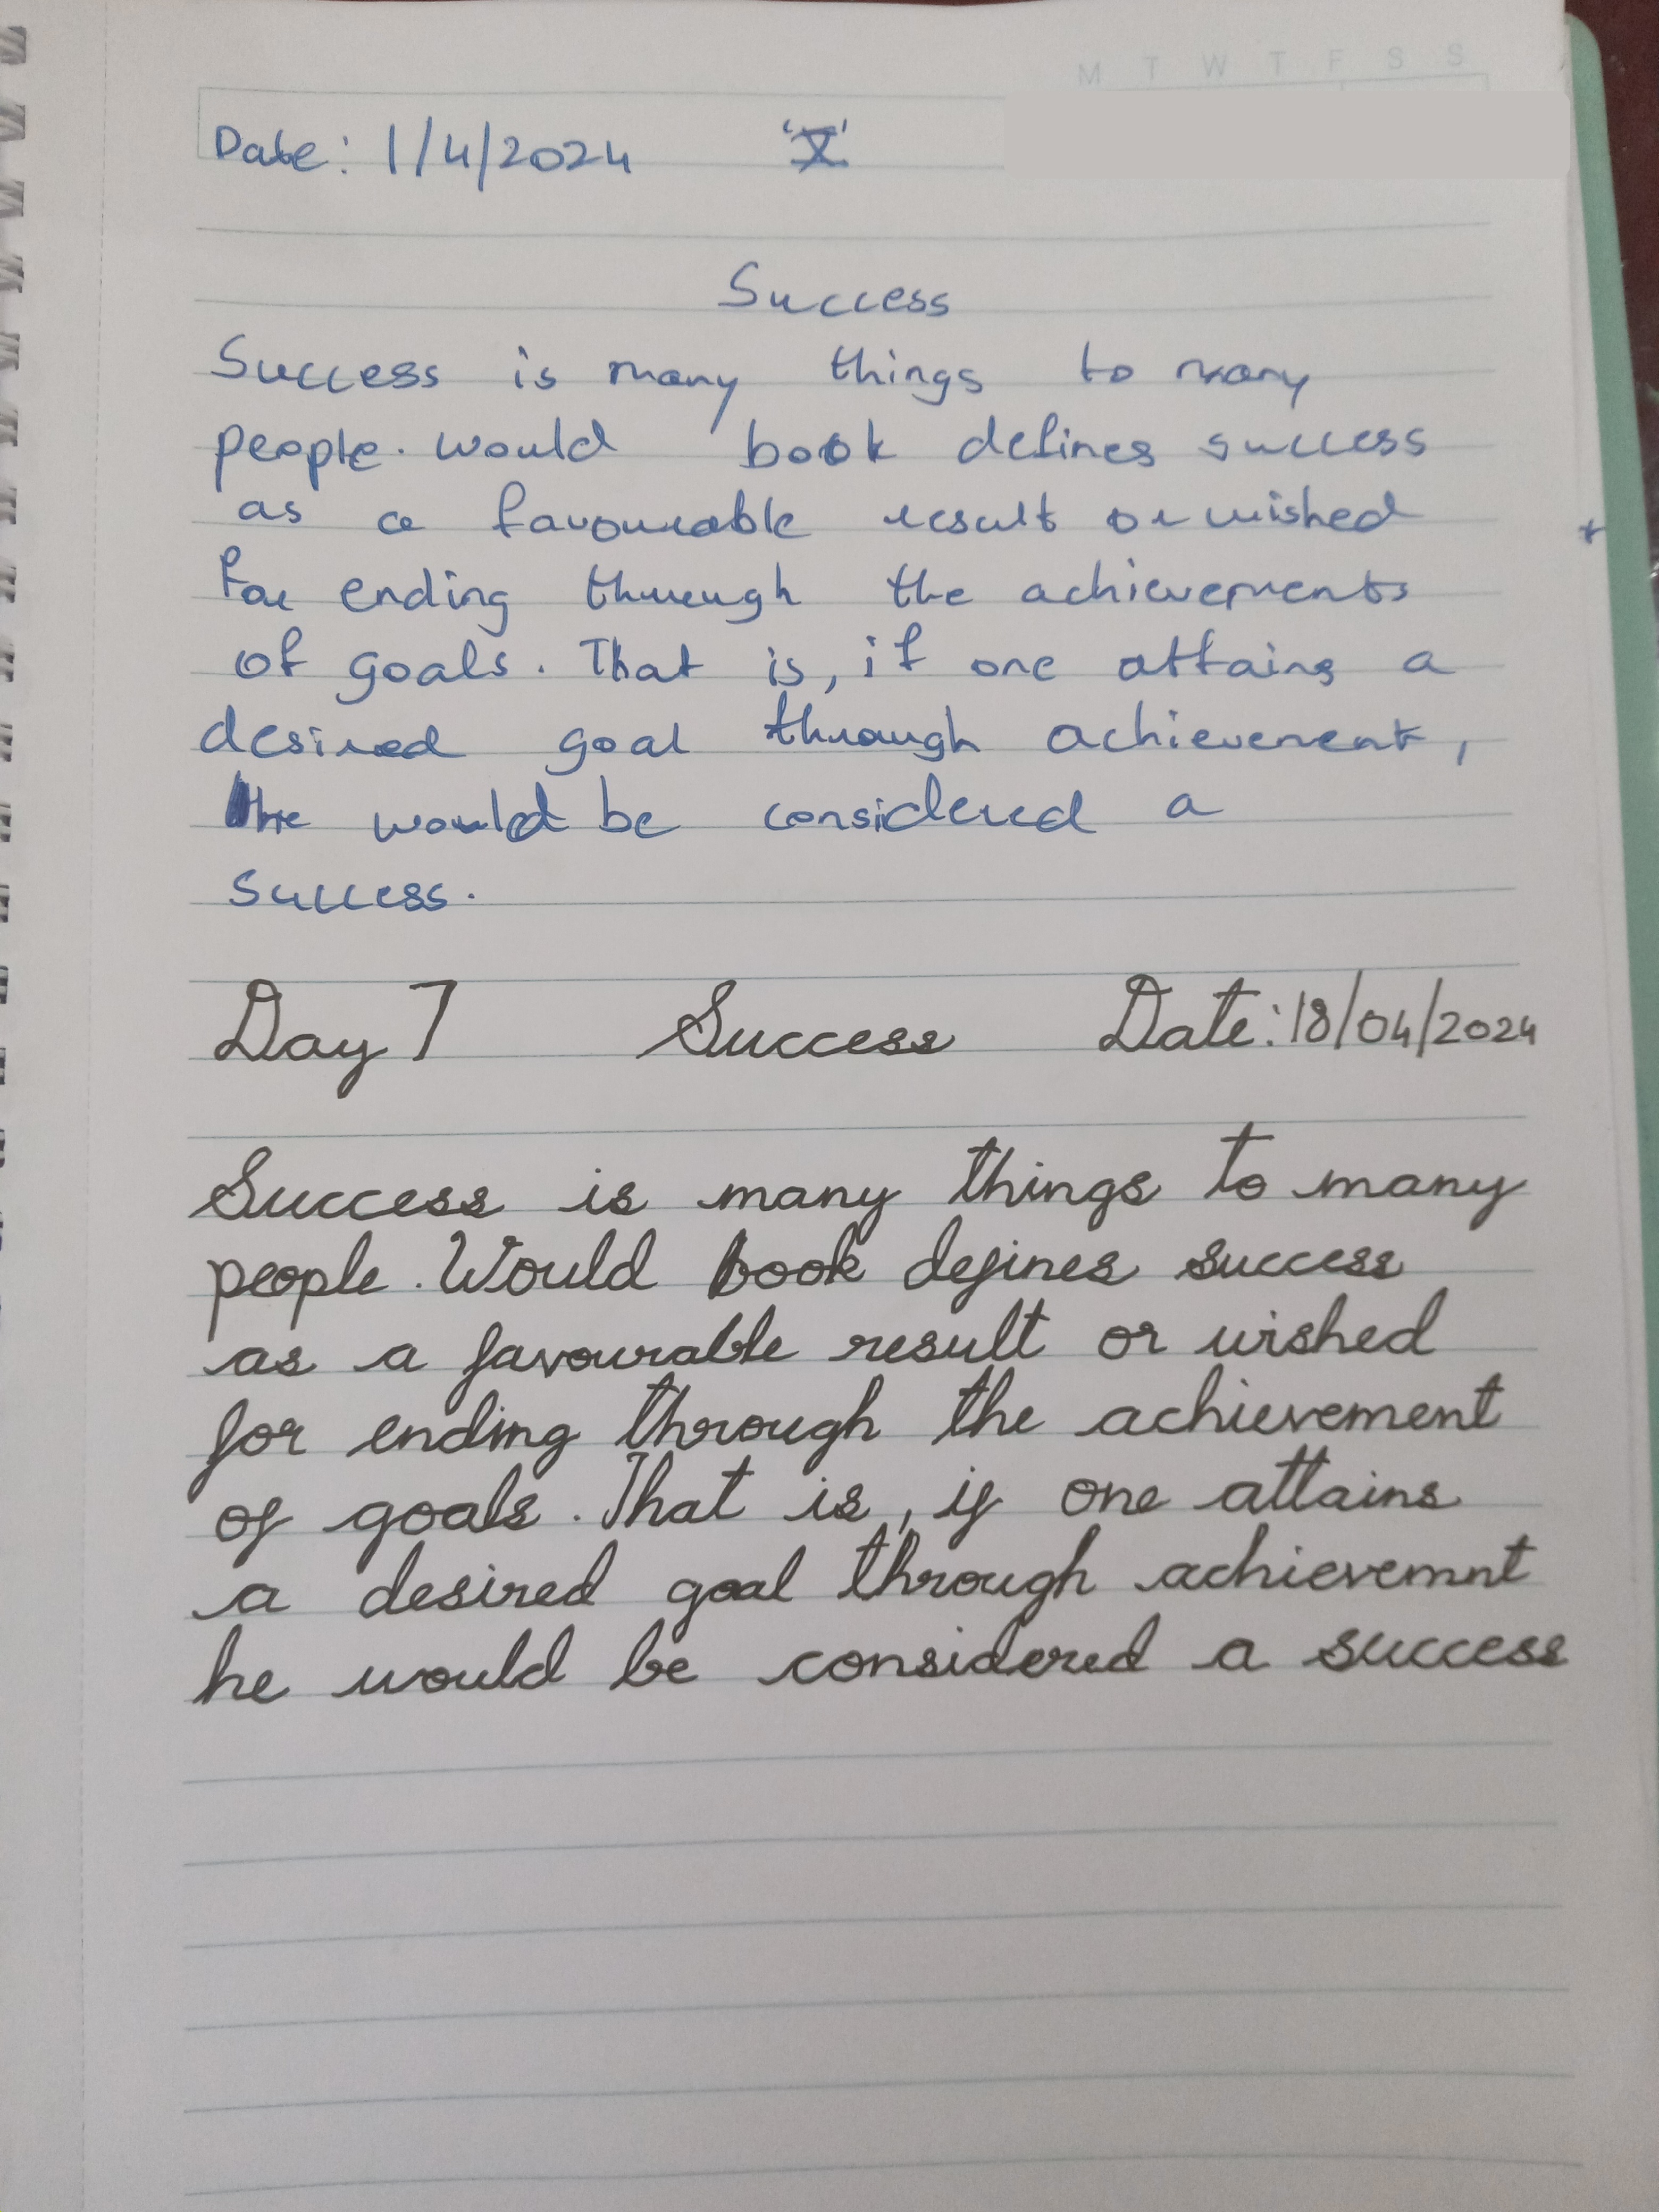 M T W T F S S
Date: 1/4/2024 'X'
Success
Success is many things to many
people. would book defines success
as a favourable result or wished
for ending through the achievements
of goals. That is, if one attains a
desired goal through achievement,
he would be considered a
success.
Day 7 Success Date: 18/04/2024
Success is many things to many
people. Would book defines success
as a favourable result or wished
for ending through the achievement
of goals. That is, if one attains
a desired goal through achievemnt
he would be considered a success